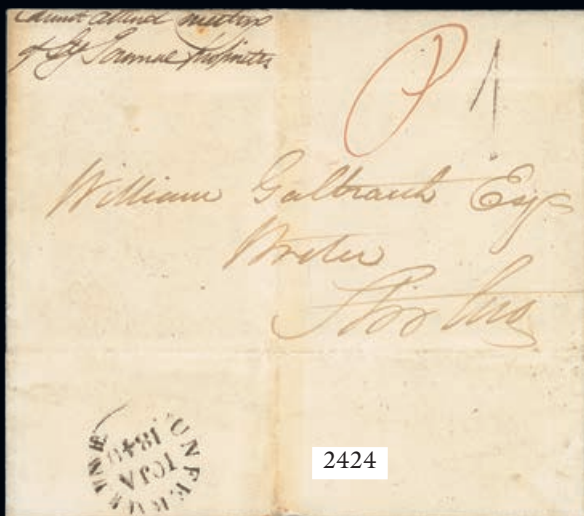 Cannot attend meeting
of
P 1
William Galbraith Esqr
Writer
Stirling
DUNFERMLINE
10 JA
1840
2424